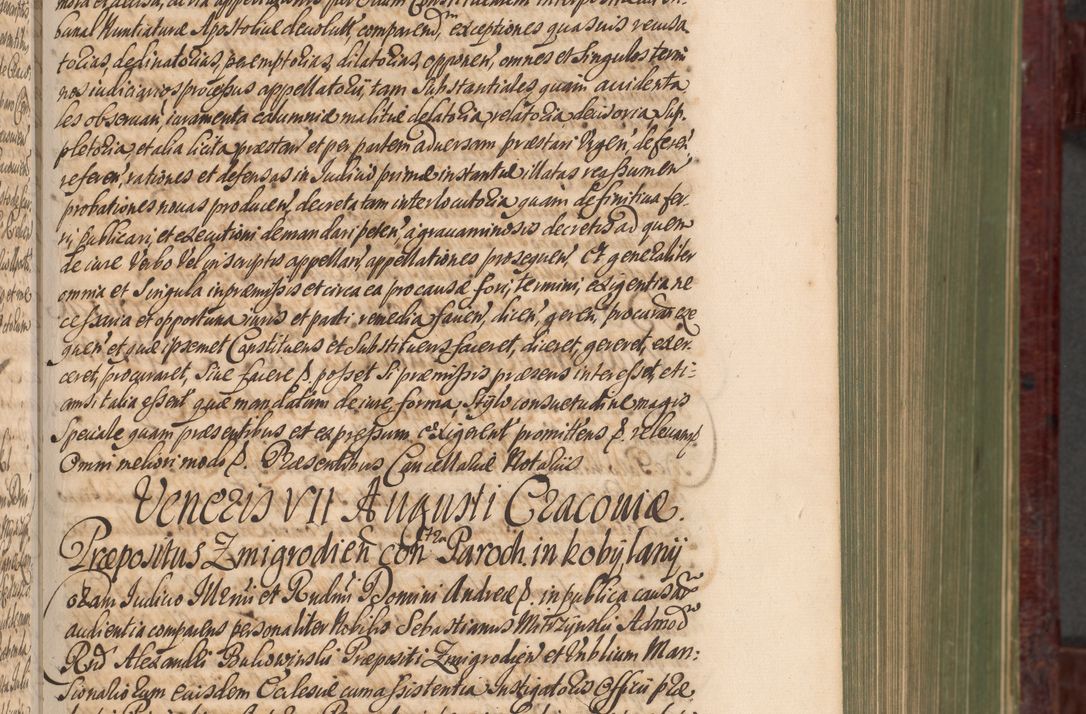 bunal Nuntiaturæ Apostolicæ devolut, comparend, exceptiones quasuis recusa
torias, declinatorias, peremptorias, dilatorias, opponen, omnes et singulos termi
nos iudiciarios processus appellatorii, tam substantiales quam accidenta
les observan, iuramenta calumniæ malitiæ delatoria, relatoria decisoria sup
pletoria, et alia licita præstan et per partem adversam præstari Vrgen, deferen
referen, rationes et defensas in Iudicio primæ instantiæ illatas reassumen
probationes novas producen, decreta tam interlocutoria quam definitiva fer
ri, publicari, et executioni demandari peten, a gravaminosis decretis ad quem
de iure Verbo Vel in scriptis appellan, appellationes prosequen, Et generaliter
omnia et singula in præmissis et circa ea pro causæ fori, termini, exigentia ne
cessaria et opportuna iuris et parti remedia facien, dicen, geren, procuran exe
quen et quæ ipsemet Constituens et Substituens faceret, diceret, gereret, exer
ceret, procuraret, sive facere posset si præmissis præsens interesset, eti-
amsi talia essent quæ mandatum de iure, forma, stylo consuetudine magis
speciale quam præsentibus et expressum exigerent promittens &. relevans
Omni meliori modo &. Præsentibus Cancellariæ Notariis
Veneris VII Augusti Cracoviæ.
Præpositus Zmigrodien contra Paroch. in Kobylany
Coram Iudicio Illmi et Rndmi Domini Andreæ &. in publica causarum
audientia comparens personaliter Nobilis Sebastianus Admod
Rnd Alexandri Bukowinski Præpositi Zmigrodien et Man-
sionariorum eiusdem Ecclesiæ cum assistentia Instigatoris Officii præ